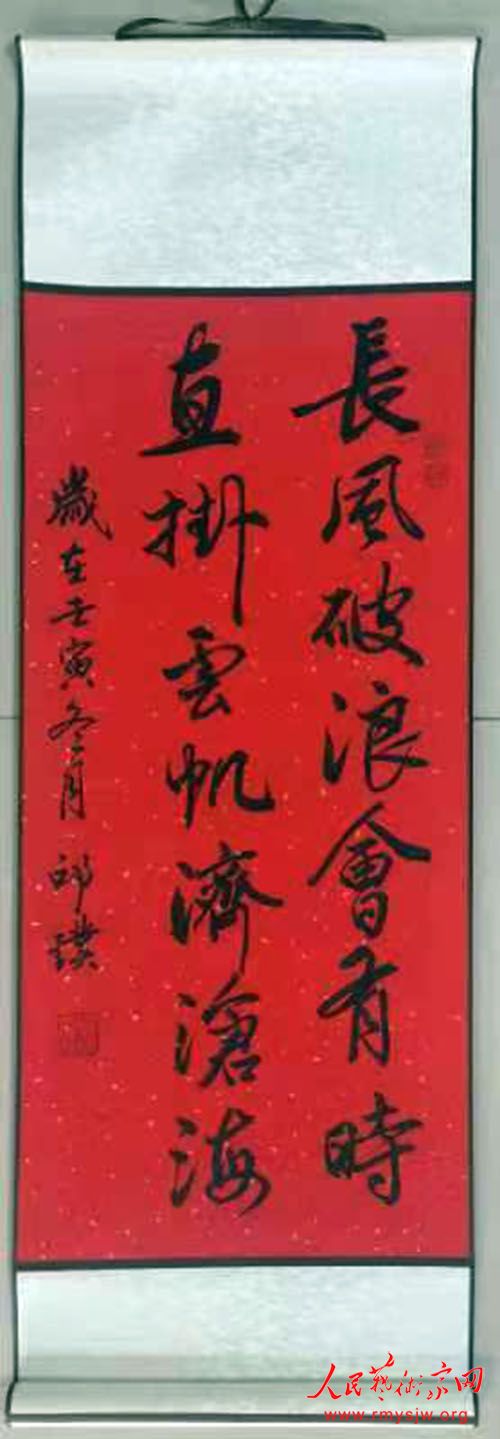 長風破浪會有時
直掛雲帆濟滄海
歲在壬寅冬月 邱璞
人民藝術家网
www.rmysjw.org